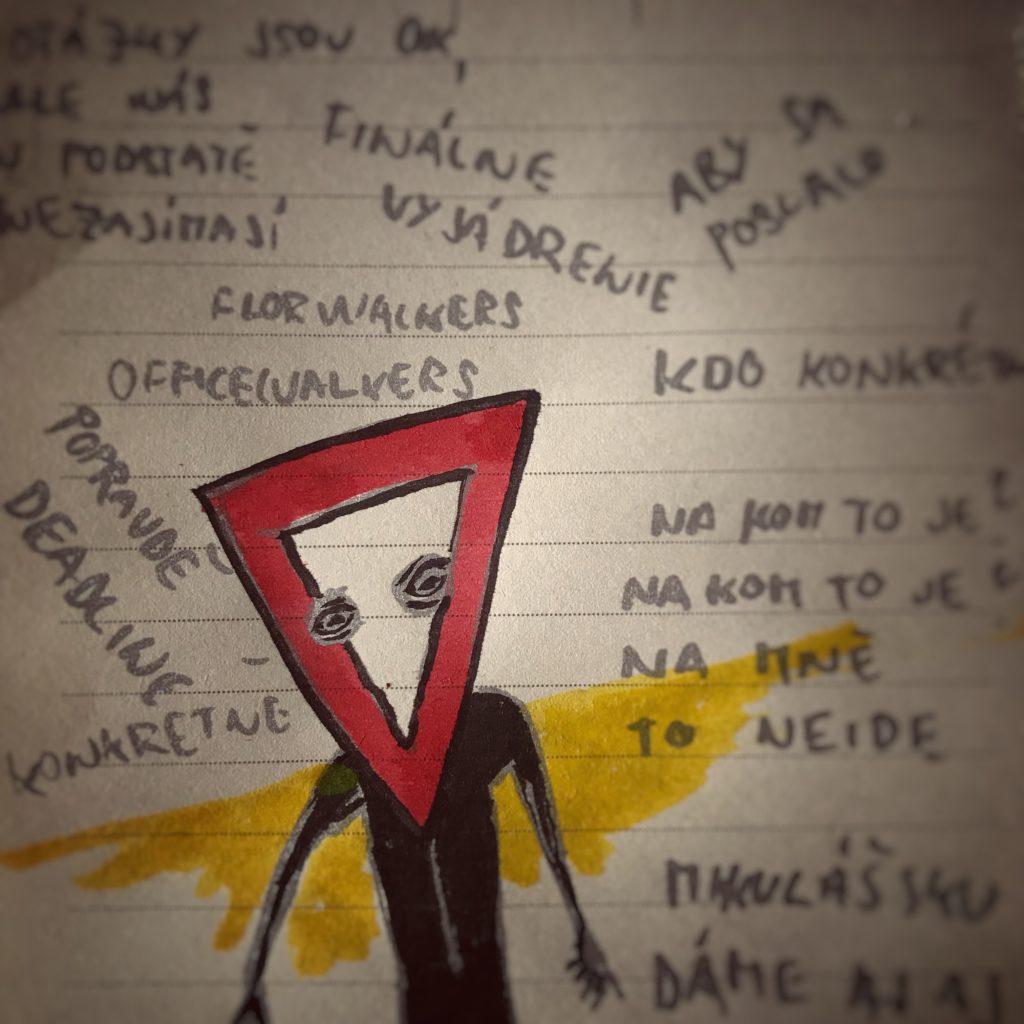 OTÁZKY JSOU OK,
ALE NÁS
V PODSTATĚ
NEZAJÍMAJÍ
FINÁLNE
VYJÁDRENIE
ABY SA
POSLALO
FLORWALKERS
OFFICEWALKERS
KDO KONKRÉTN
POPRAVDĚ
DEADLINE
KONKRETNĚ
NA KOM TO JE ?
NA KOM TO JE ?
NA MNĚ
TO NEIDE
MIKULÁŠSKU
DÁME AJ AJ